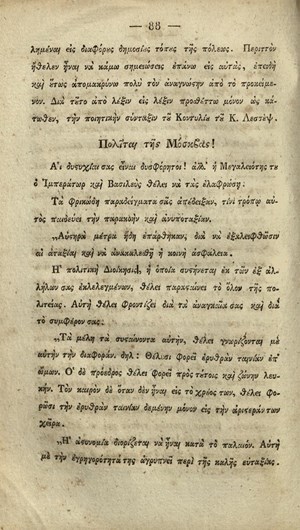 — 88 —
λημέναι εἰς διαφόρες δημοσίες τόπες τῆς πόλεως. Περιττὸν
ἤθελεν ἦναι νὰ κάμω σημειώσεις ἐπάνω εἰς αὐτὰς, ἐπειδὴ
καὶ ἔτως ἀπομακρύνω πολὺ τὸν ἀναγνώστην ἀπὸ τὸ προκείμε-
νον. Διὰ τᾶτο ἀπὸ λέξιν εἰς λέξιν προσθέττω μόνον ὡς κά-
τωθεν, τὴν ποιητικὴν σύνταξιν τᾶ Κοντυλίᾳ τᾶ Κ. Λεσσέψ.
Πολῖται τῆς Μόσκβας!
Αἱ δυςυχίαι σας εἶναι δυσφόρητοι! ἀλλ' ἡ Μεγαλειότης τε
ὁ Ἰμπεράτωρ καὶ Βασιλεὺς θέλει νὰ τὰς ἐλαφρώσῃ.
Τὰ Φρικώδη παραδείγματα σᾶς ἀπέδειξαν, τίνι τρόπῳ αὐ-
τὸς παιδεύει τὴν παρακοὴν καὶ ἀνυποταξίαν.
„Αὐςηρὰ μέτρα ἤδη ἐπάρθηκαν, διὰ νὰ ἐξαλειφθῶσιν
αἱ ἀταξίαι καὶ νὰ ἀνακαλεσθῇ ἡ κοινὴ ἀσφάλεια.
Ἡ πολιτικὴ Διοίκησις, ἡ ὁποία συςήνεται ἐκ τῶν ἐξ ἀλ-
λήλων σας ἐκλελεγμένων, θέλει παραςαίνει τὸ ὅλον τῆς πο-
λιτείας. Αὐτὴ θέλει φροντίζει διὰ τὰ ἀναγκαῖά σας καὶ διὰ
τὸ συμφέρον σας:
„Τὰ μέλη τὰ συςαίνοντα αὐτὴν, θέλει γνωρίζονται μὲ
αὐτὴν τὴν διαφοράν, δηλ: Θέλεσι φορεῖ ἐρυθρὰν ταινίαν ἐπ'
ὤμων. Ὁ δὲ πρόεδρος θέλει φορεῖ πρὸς τάτοις καὶ ζώνην λευ-
κήν. Τὸν καιρὸν δὲ ὅταν δὲν ἦναι εἰς τὸ χρέος των, θέλει φο-
ρῶσι τὴν ἐρυθρὰν ταινίαν δεμένην μόνον εἰς τὴν ἀριςεράν των
χεῖρα.
„Ἡ ἀςυνομία διορίζεται νὰ ἦναι κατὰ τὸ παλαιόν. Αὐτὴ
μὲ τὴν ἐγρηγορότητά της ἀγρυπνεῖ περὶ τῆς καλῆς εὐταξίας.